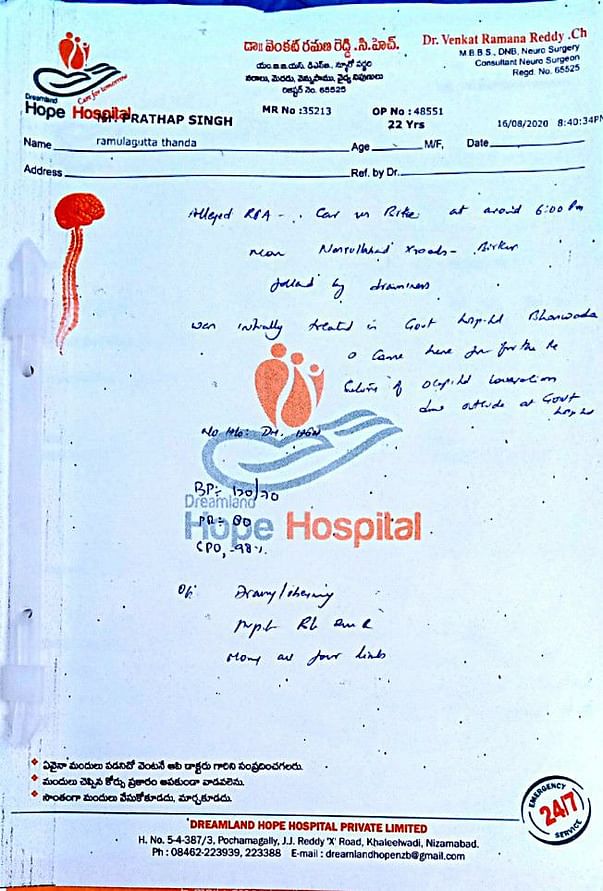 డా॥ వెంకట్ రమణ రెడ్డి .సి.హెచ్.
యం.బి.బి.యస్. డిఎన్‌బి., న్యూరో సర్జరీ
నరాలు, మెదడు, వెన్నుపాము, వైద్య నిపుణులు
రిజిస్టర్ నెం. 65525
Dr. Venkat Ramana Reddy .Ch
M.B.B.S., DNB, Neuro Surgery
Consultant Neuro Surgeon
Regd. No. 65525
Care for tomorrow
Dreamland
Hope Hospital
MR No :35213
OP No : 48551
PRATHAP SINGH
22 Yrs
16/08/2020 8:40:34PM
Name ramulagutta thanda Age M/F, Date
Address Ref. by Dr.
Alleged RTA - Car vs Bike at around 6:00 Pm
near Nasrullabad Xroads - Birkur
followed by drowsiness
was initially treated in Govt hospital Banswada
Came here for further
Suturing of occipital laceration
done outside at Govt
hospital
No H/o: DM, HTN
BP:- 120/70
Dreamland
Hope Hospital
PR:- 80
SPO2 -98%
O/E Drowsy/
Moving all four limbs
ఏవైనా మందులు పడనిచో వెంటనే ఆపి డాక్టరు గారిని సంప్రదించగలరు.
మందులు చెప్పిన కోర్సు ప్రకారం ఆపకుండా వాడవలెను.
సొంతంగా మందులు వేసుకోకూడదు, మార్చకూడదు.
EMERGENCY
24/7
SERVICE
DREAMLAND HOPE HOSPITAL PRIVATE LIMITED
H. No. 5-4-387/3, Pochamagally, J.J. Reddy 'X' Road, Khaleelwadi, Nizamabad.
Ph : 08462-223939, 223388 E-mail : dreamlandhopenzb@gmail.com